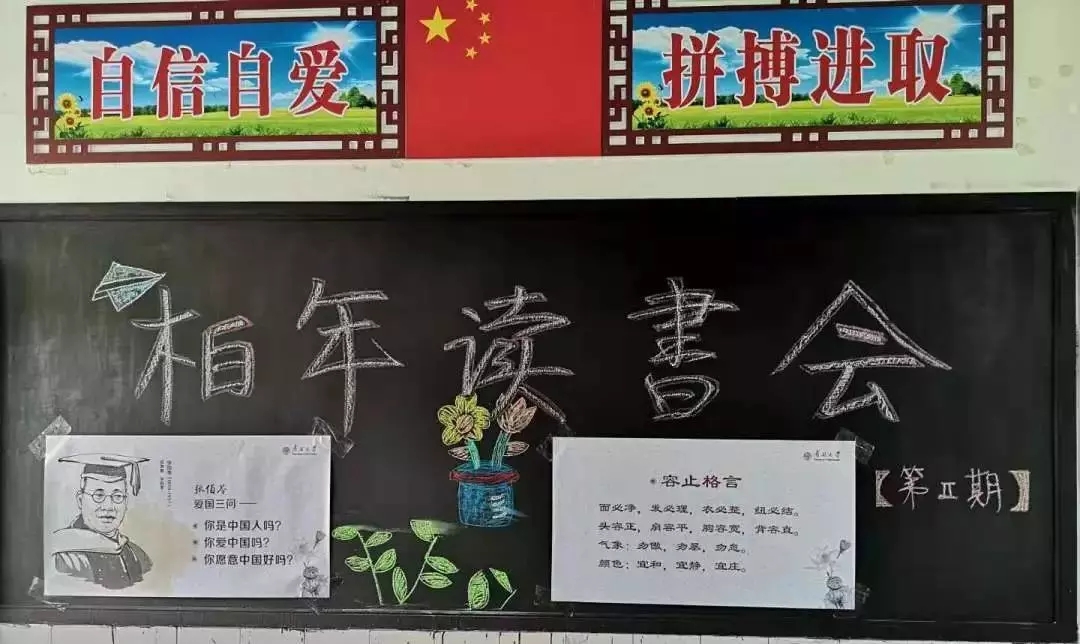 自信自爱
拼搏进取
柏年读书会
【第Ⅱ期】
张伯苓
爱国三问——
你是中国人吗？
你爱中国吗？
你愿意中国好吗？
南开大学
容止格言
面必净，发必理，衣必整，纽必结。
头容正，肩容平，胸容宽，背容直。
气象：勿傲，勿暴，勿怠。
颜色：宜和，宜静，宜庄。